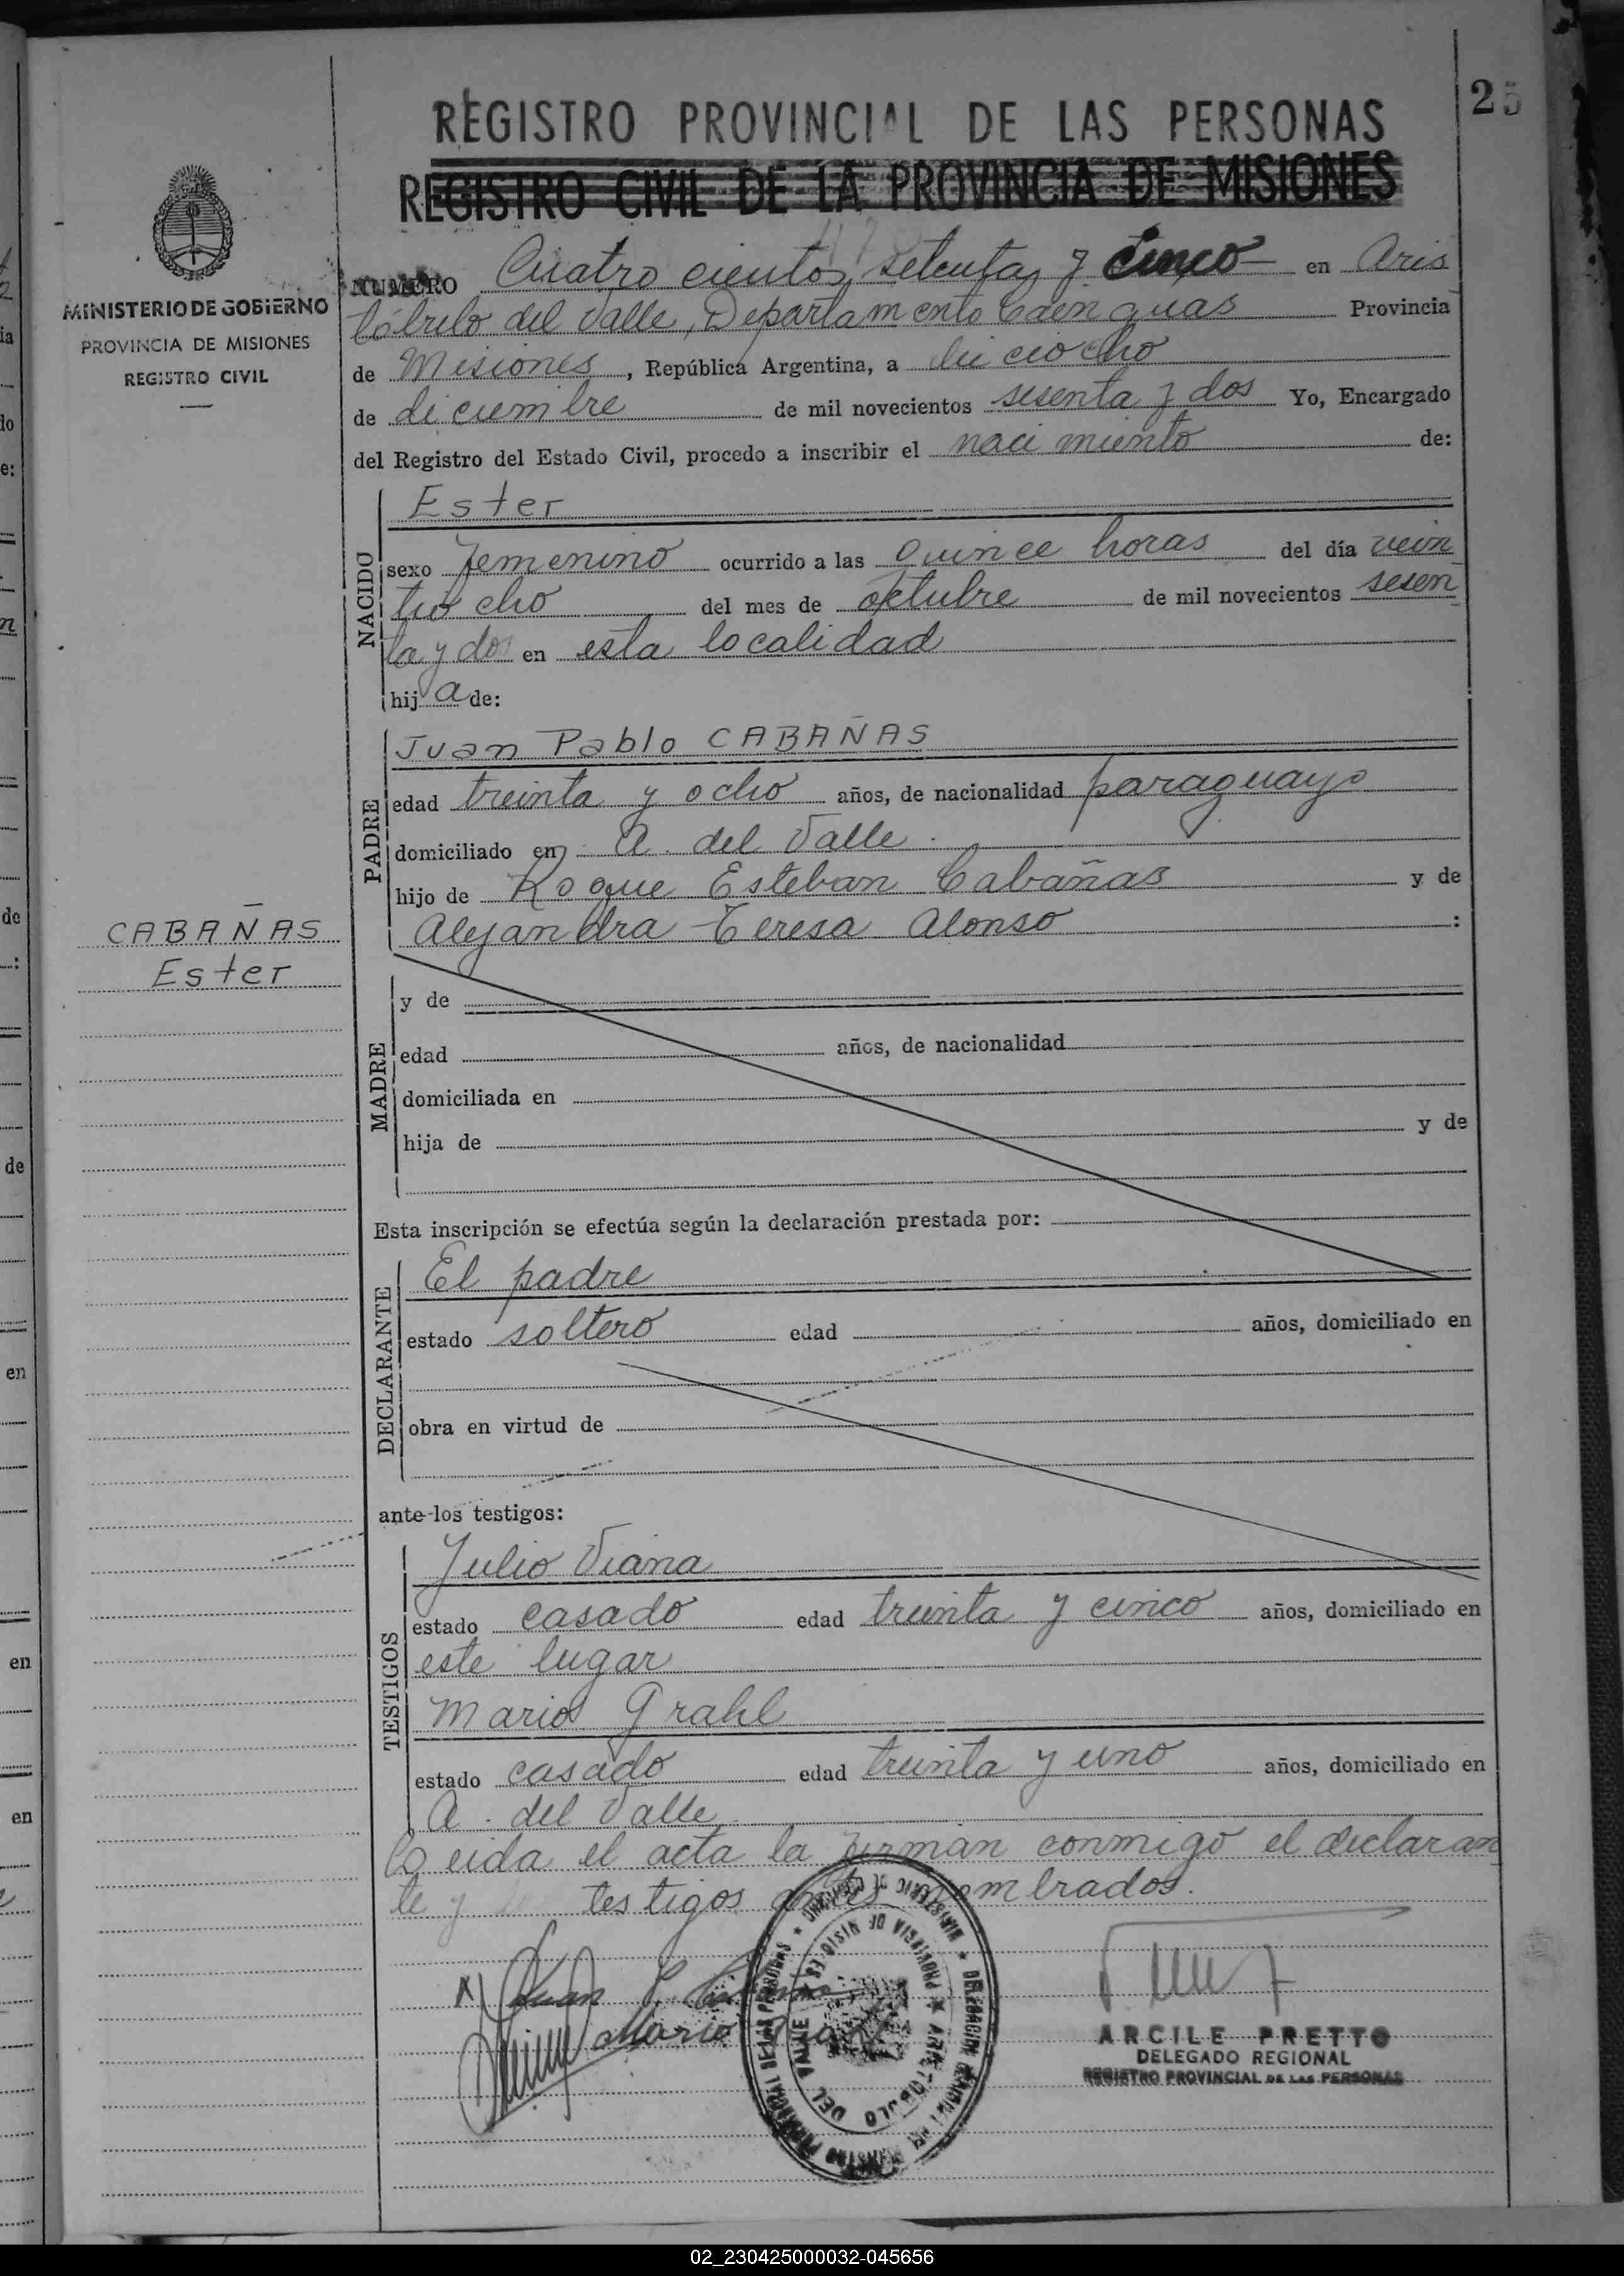 25
REGISTRO PROVINCIAL DE LAS PERSONAS
REGISTRO CIVIL DE LA PROVINCIA DE MISIONES
MINISTERIO DE GOBIERNO
PROVINCIA DE MISIONES
REGISTRO CIVIL
NUMERO Cuatro cientos setenta y cinco en Aris
tóbulo del Valle, Departamento Cainguas Provincia
de Misiones, República Argentina, a dieciocho
de diciembre de mil novecientos sesenta y dos Yo, Encargado
del Registro del Estado Civil, procedo a inscribir el naci miento de:
NACIDO
Ester
sexo femenino ocurrido a las quince horas del día vein
tiocho del mes de octubre de mil novecientos sesen
ta y dos en esta localidad
hij a de:
PADRE
Juan Pablo CABAÑAS
edad treinta y ocho años, de nacionalidad paraguayo
domiciliado en A. del Valle.
hijo de Roque Esteban Cabañas y de
Alejandra Teresa Alonso :
CABAÑAS
Ester
MADRE
y de
edad años, de nacionalidad
domiciliada en
hija de y de
Esta inscripción se efectúa según la declaración prestada por:
DECLARANTE
El padre
estado soltero edad años, domiciliado en
obra en virtud de
ante los testigos:
TESTIGOS
Julio Viana
estado casado edad treinta y cinco años, domiciliado en
este lugar
Mario Grahl
estado casado edad treinta y uno años, domiciliado en
A. del Valle
Leida el acta la firman conmigo el declaran
te y testigos antes nombrados.
Juan P.
Mario
MINISTERIO DE GOBIERNO
PROVINCIA DE MISIONES
ARISTOBULO DEL VALLE
ARCILE PRETTO
DELEGADO REGIONAL
REGISTRO PROVINCIAL DE LAS PERSONAS
02_230425000032-045656